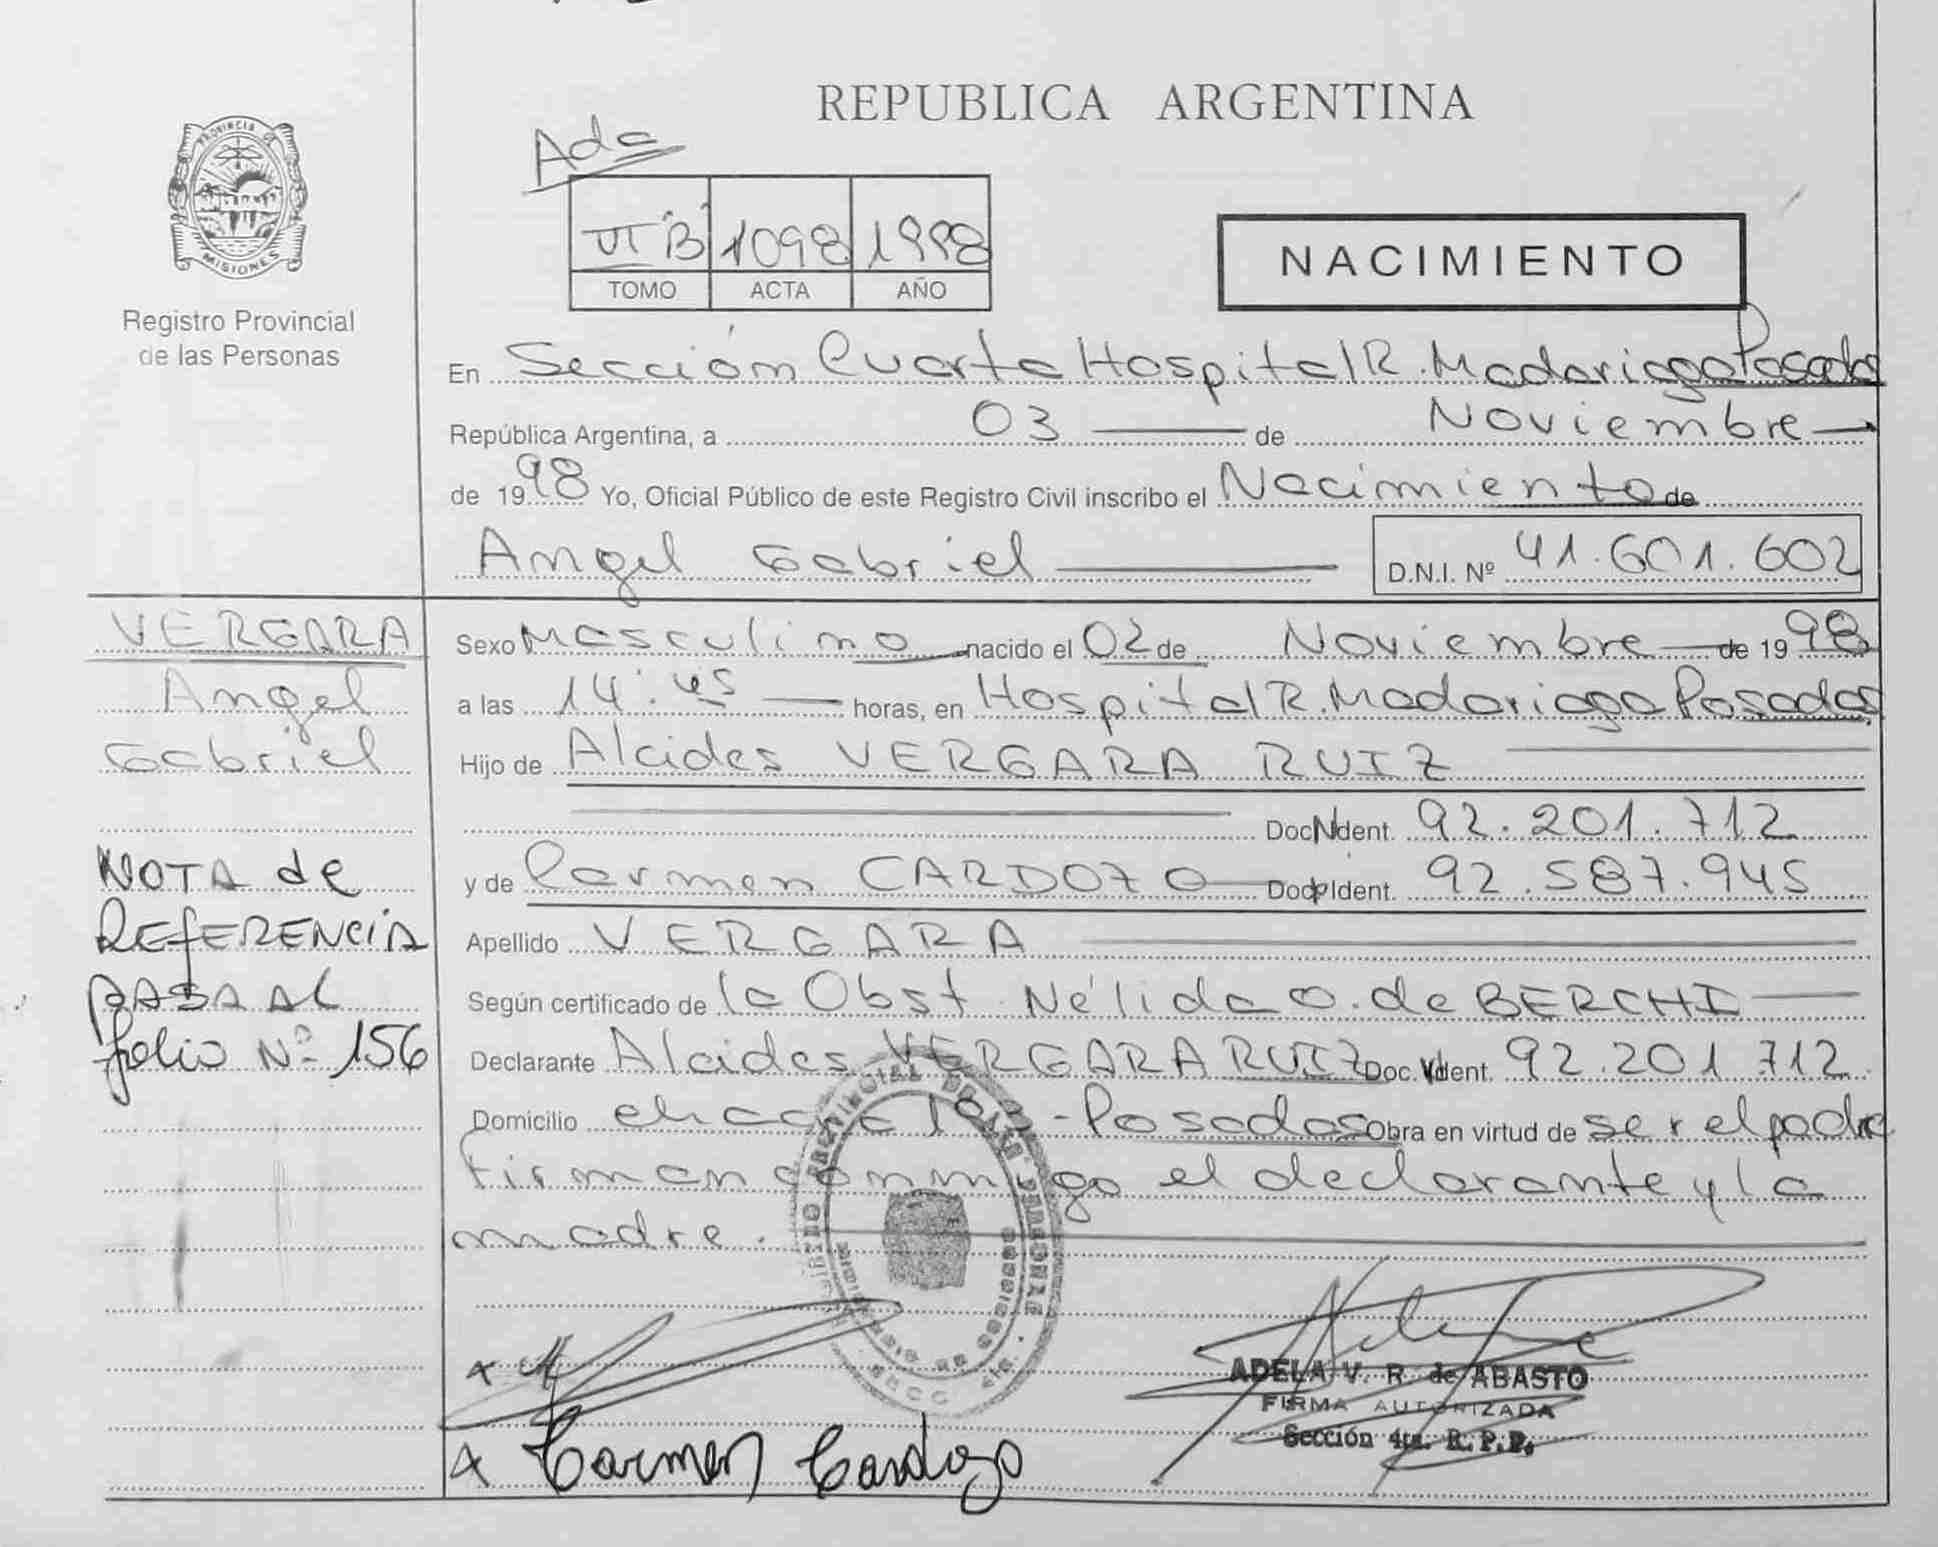 REPUBLICA ARGENTINA
PROVINCIA DE
MISIONES
Registro Provincial
de las Personas
Ada
VI "B" 1098 1998
TOMO ACTA AÑO
NACIMIENTO
En Sección Cuarta Hospital R. Madariaga Posadas
República Argentina, a 03 de Noviembre
de 1998 Yo, Oficial Público de este Registro Civil inscribo el Nacimiento de
Angel Gabriel D.N.I. Nº 41.601.602
VERGARA
Angel
Gabriel
NOTA de
REFERENCIA
PASA AL
folio Nº 156
Sexo Masculino nacido el 02 de Noviembre de 1998
a las 14:45 horas, en Hospital R. Madariaga Posadas
Hijo de Alcides VERGARA RUIZ
Doc. Ident. 92.201.712
y de Carmen CARDOZO Doc. Ident. 92.587.945
Apellido VERGARA
Según certificado de la Obst. Nélida O. de BERCHI
Declarante Alcides VERGARA RUIZ Doc. Ident. 92.201.712
Domicilio - Posadas Obra en virtud de ser el padre
firman conmigo el declarante y la
madre.
ADELA V. R. de ABASTO
FIRMA AUTORIZADA
Sección 4ta. R. P. P.
Carmen Cardozo